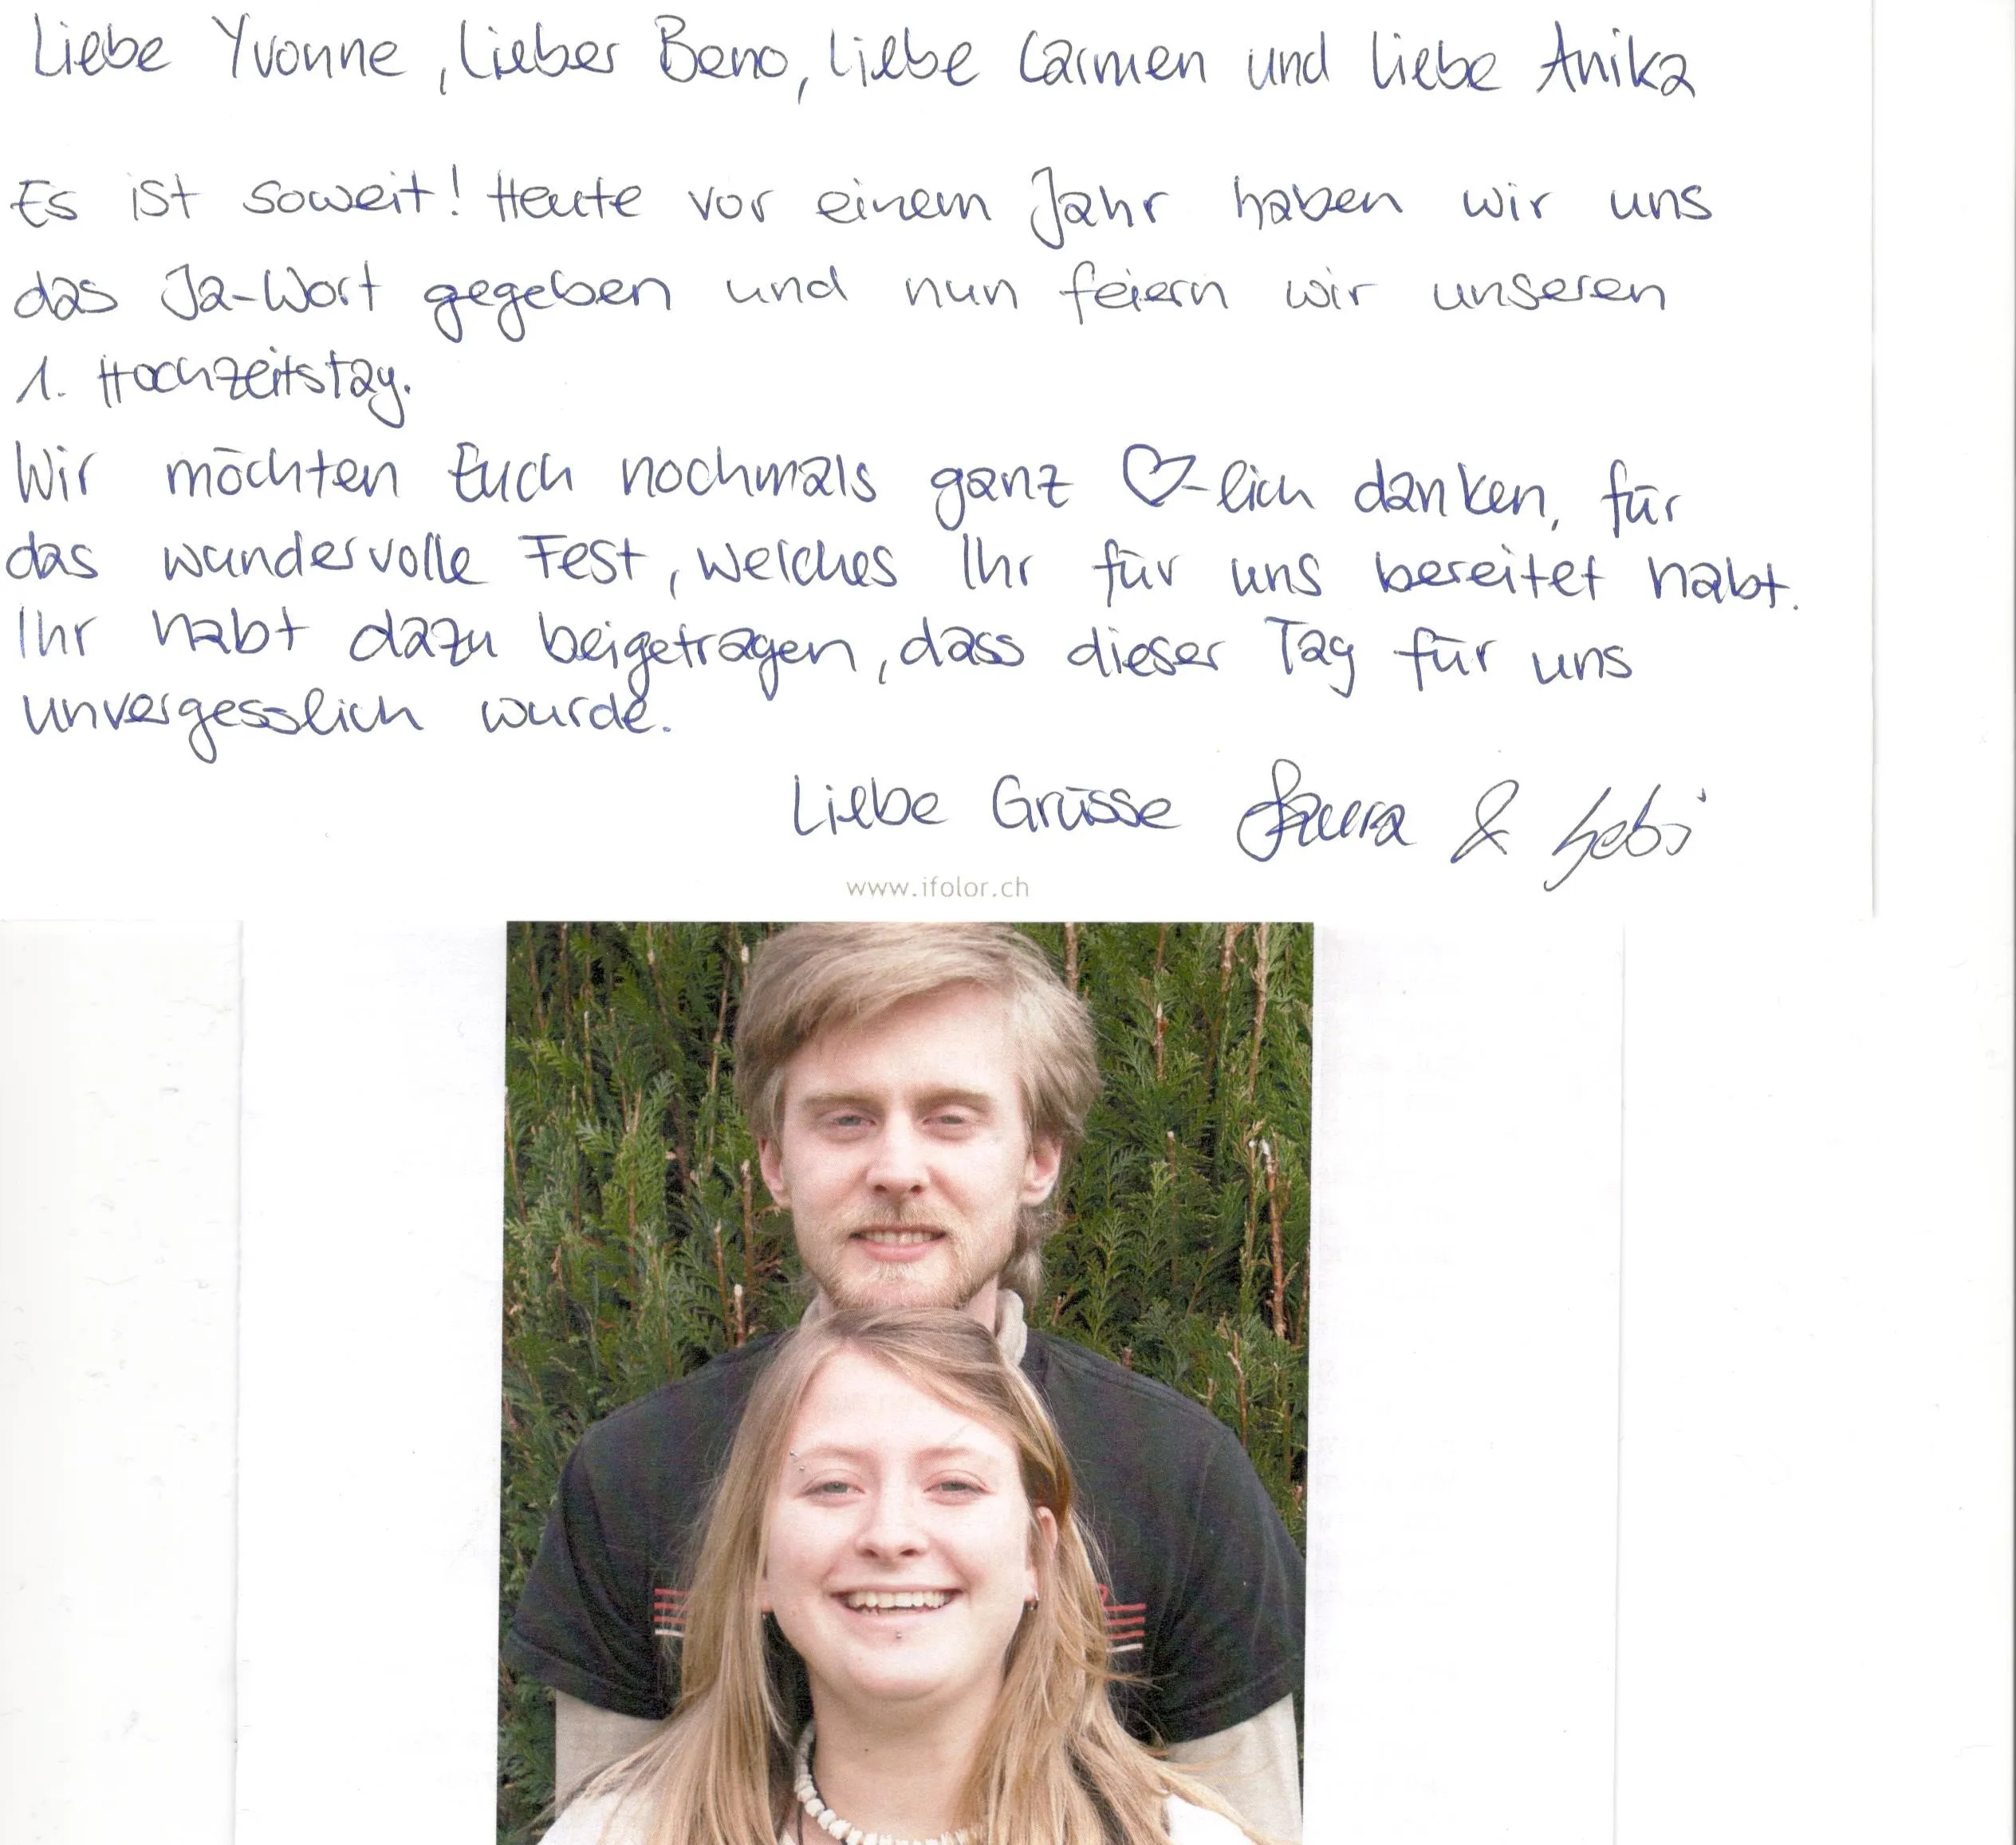 Liebe Yvonne, lieber Beno, liebe Carmen und liebe Anika
Es ist soweit! Heute vor einem Jahr haben wir uns
das Ja-Wort gegeben und nun feiern wir unseren
1. Hochzeitstag.
Wir möchten Euch nochmals ganz ♡-lich danken, für
das wundervolle Fest, welches Ihr für uns bereitet habt.
Ihr habt dazu beigetragen, dass dieser Tag für uns
unvergesslich wurde.
Liebe Grüsse Laura & Sebi
www.ifolor.ch